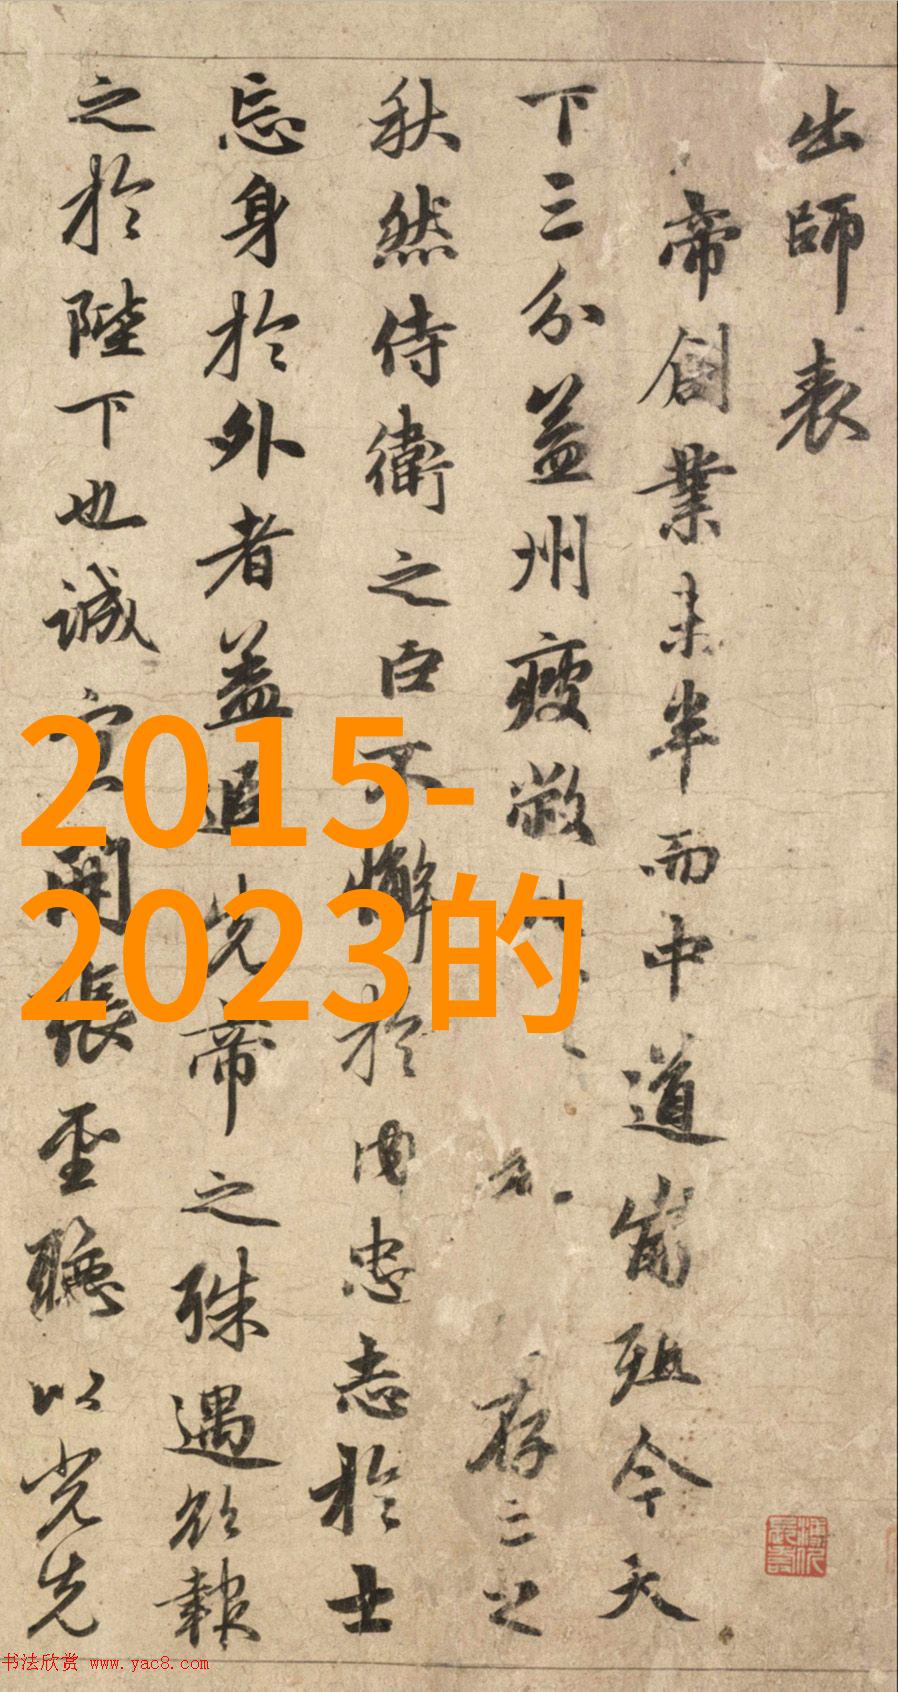 出師表
帝創業未半而中道崩殂今天
下三分益州疲敝存之
秋然侍衛之臣不懈於内忠志於士
忘身於外者益追先帝之殊遇欲報
之於陛下也誠宜開張聖聽以光先
2015-
2023的
书法欣赏 www.yac8.com